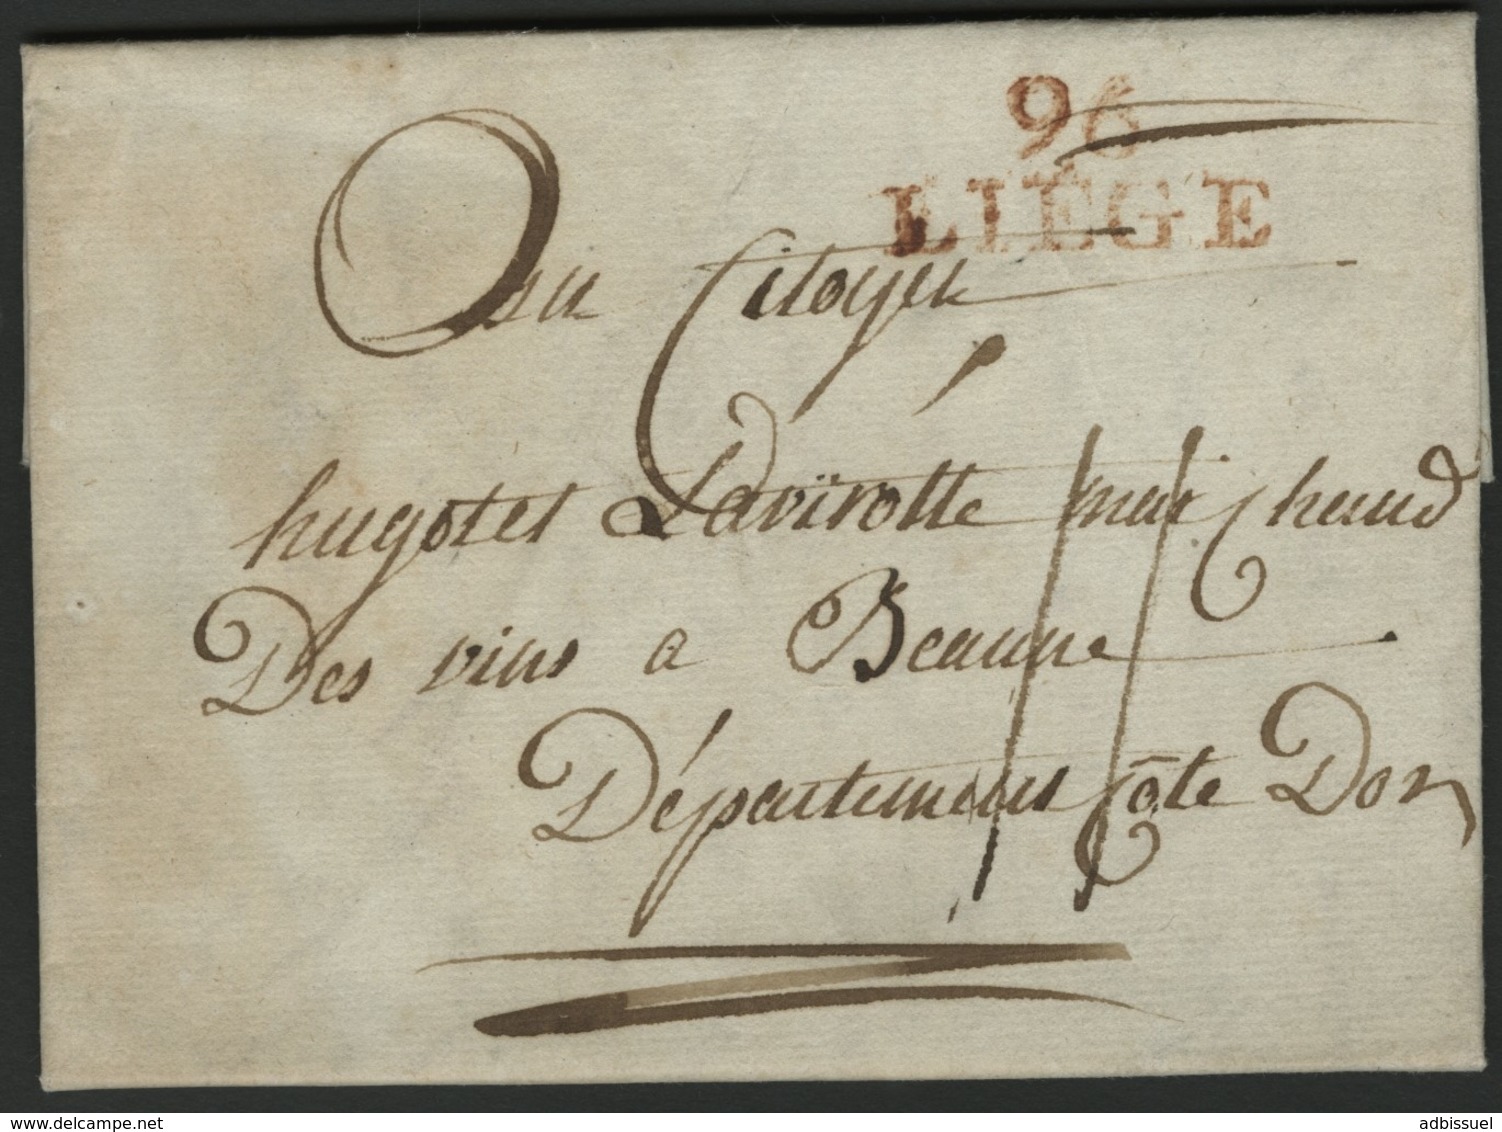 96
LIÉGE
Au Citoyen
hugotet Lavirotte marchand
Des vins a Beaune
Département Côte Dor
delcampe.net
adbissuel